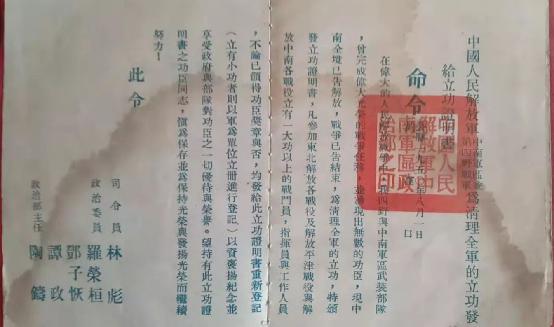 中國人民解放軍中南軍區第四野戰軍為清理全軍的立功發
給立功證明書
命令
八月一日
在偉大的人民解放戰爭中我四野與中南軍區武裝部隊
,曾完成偉大光榮的戰爭任務,並湧現出無數的功臣,現中
南全境已告解放,戰爭已告結束,為清理全軍的立功,特頒
發立功證明書,凡參加東北解放各戰役及解放平津戰役與解
放中南各戰役立有一大功以上的戰鬥員,指揮員與工作人員
,不論已領得功臣獎章與否,均發給此立功證明書重新登記
(立有小功者則以軍為單位立冊進行登記)以資褒揚紀念並
享受政府與部隊對功臣之一切優待與榮譽。望持有此立功證
明書之功臣同志,愼為保存並為保持光榮與發揚光榮而繼續
努力!
此令
司令員 林彪
政治委員 羅榮桓
鄧子恢
譚政
政治部主任 陶鑄